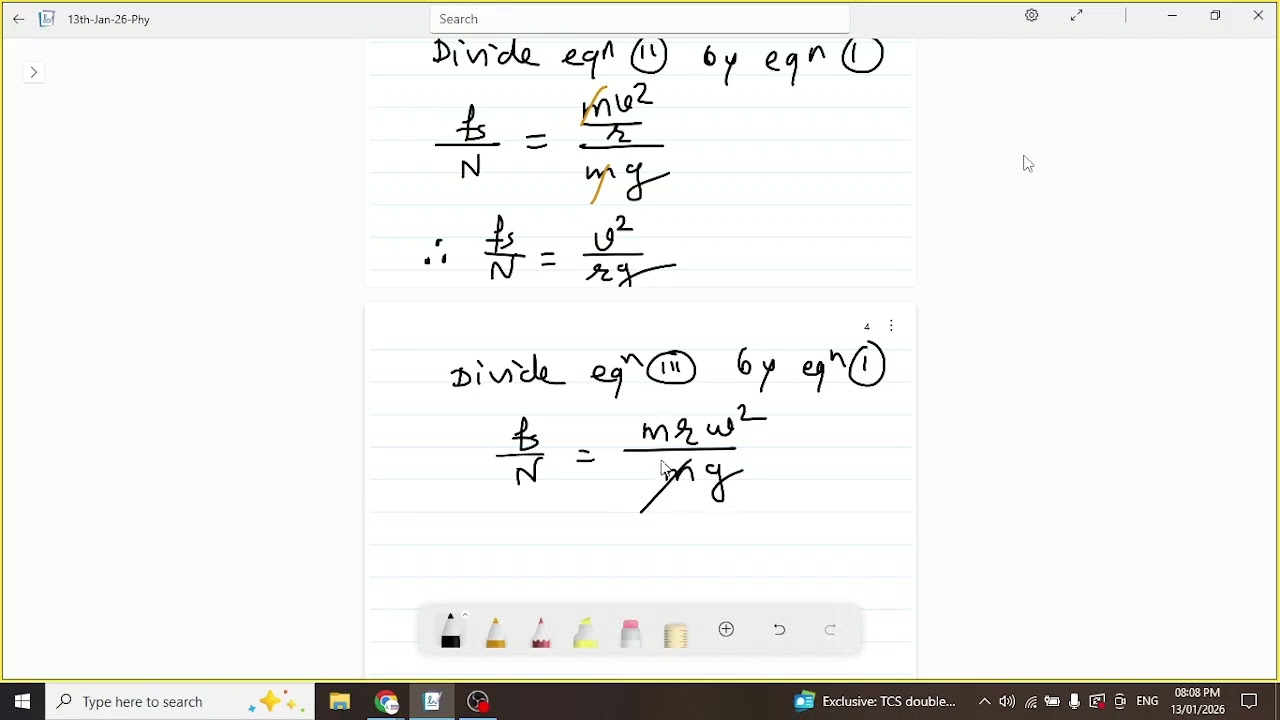 13th-Jan-26-Phy
Search
Divide eqⁿ (II) by eqⁿ (I)
fs/N = (mv²/r)/(mg)
∴ fs/N = v²/rg
4
Divide eqⁿ (III) by eqⁿ (I)
fs/N = mrω²/mg
Type here to search
Exclusive: TCS double...
ENG
08:08 PM
13/01/2026